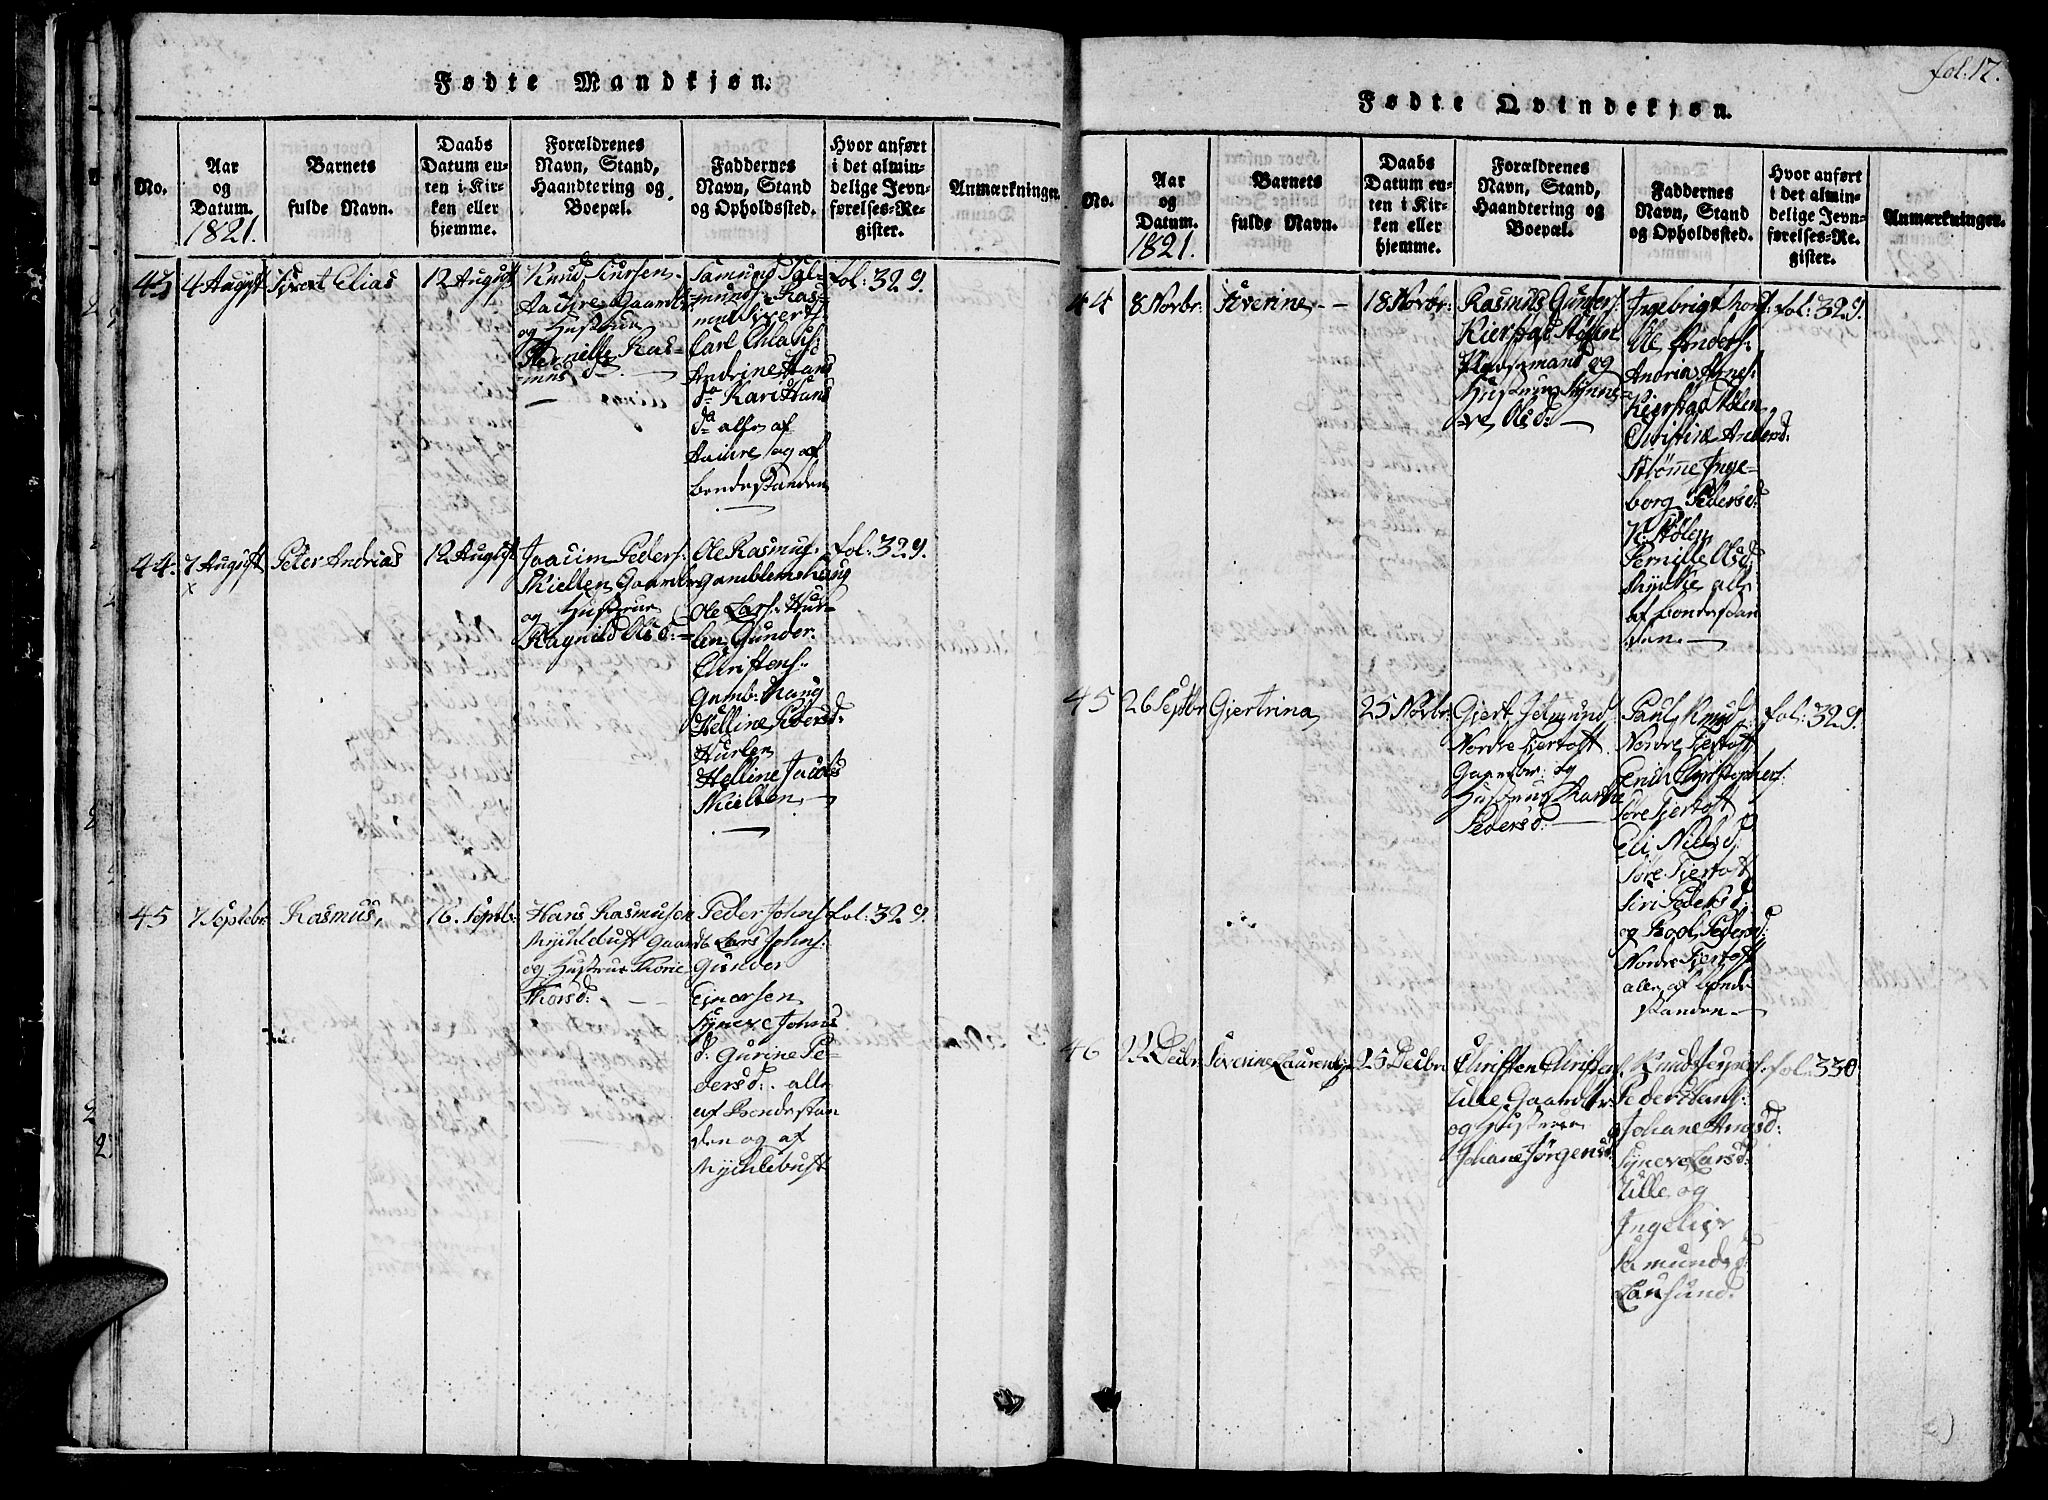 Fødte Mandkjøn.
No.
Aar
og
Datum.
1821.
Barnets
fulde Navn.
Daabs
Datum en-
ten i Kir-
ken eller
hjemme.
Forældrenes
Navn, Stand,
Haandtering og
Boepæl.
Faddernes
Navn, Stand
og Opholdssted.
Hvor anført
i det almin-
delige Jevn-
førelses-Re-
gister.
Anmærkninger.
43
4 August
Sivert Elias
12 August
Knud
og Hustrue
Pernille Ras-
muus d
Ras-
mus Sivert
Carl
Andrine Hans
d Kari Hans
d alle af
og af
bondestanden
fol: 329.
44.
7 August
x
Peter Andrias
12 August
Joacim Peders.
Skiellen Gaardbr
og Hustrue
Ragnild Olsd:
Ole Rasmus.
Gamblemshaug
Ole Lars: Hur-
len Gunder
Christens:
Gamb: haug
Helline Pedersd:
Hurlen
Helline Jacobs
Skiellen
fol: 329.
45
7 Septebr
Rasmus,
16. Septb:
Hans Rasmusen
Myhlebust Gaardb
og Hustrue Thorie
Thorsd:
Peder Johns
Lars Johns:
Gunder
Ejnersen
Syneve Johns
d: Gurine Pe-
dersd: alle
af Bondestan
den og af
Myhlebust
fol: 329.
fol: 17.
Fødte Qvindekjøn.
No.
Aar
og
Datum.
1821.
Barnets
fulde Navn.
Daabs
Datum en-
ten i Kir-
ken eller
hjemme.
Forældrenes
Navn, Stand,
Haandtering og
Boepæl.
Faddernes
Navn, Stand
og Opholdssted.
Hvor anført
i det almin-
delige Jevn-
førelses-Re-
gister.
Anmærkninger.
44
8 Novbr:
Siverine
18 Novbr:
Rasmus Gunders
Kierstad Stølen
Pladsemand og
Hustrue Synne-
ve Olsd:
Ingebrigt
Ole Anders:
Andrias Arnes:
Kierstad Stølen
Christine Andersd:
Strømme Inge-
borg Pedersd:
K: Stølen
Pernille Olsd:
alle
af bondestan
den.
fol: 329.
45
26 Septbr
Gjertrina
25 Novbr:
Gjert
Nordre Fjertoft
Gaardbr: og
Hustrue Karhe
Pedersd:
Paul Knud
Nordre Fjertoft
Erich Christophers:
Søre Fjertoft
Eli Nielsd:
Søre Fjertoft
Siri Pedersd:
og Pedersd:
Nordre Fjertoft
alle af bonde
standen
fol: 329.
46
22 Decbr
Severine
25 Decbr
Christen Christens
Ulle Gaardbr
og Hustrue
Johane Jørgensd:
Knud
Peder Hans:
Johane
Syneve Larsd:
Ulle og
Samundsd:
fol: 330